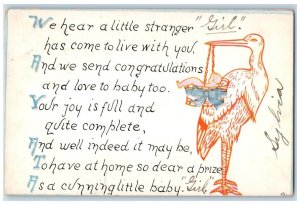 We hear a little stranger "Girl."
has come to live with you.
And we send congratulations
and love to baby too.
Your joy is full and
quite complete,
And well indeed it may be,
To have at home so dear a prize
As a cunning little baby. "Girl"
Sylvia